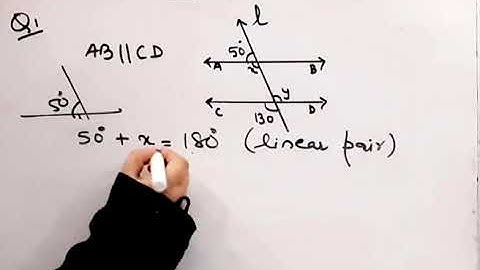 Q1
l
AB || CD
50°
A
x
B
50°
y
C
130
D
50° + x = 180° (linear pair)